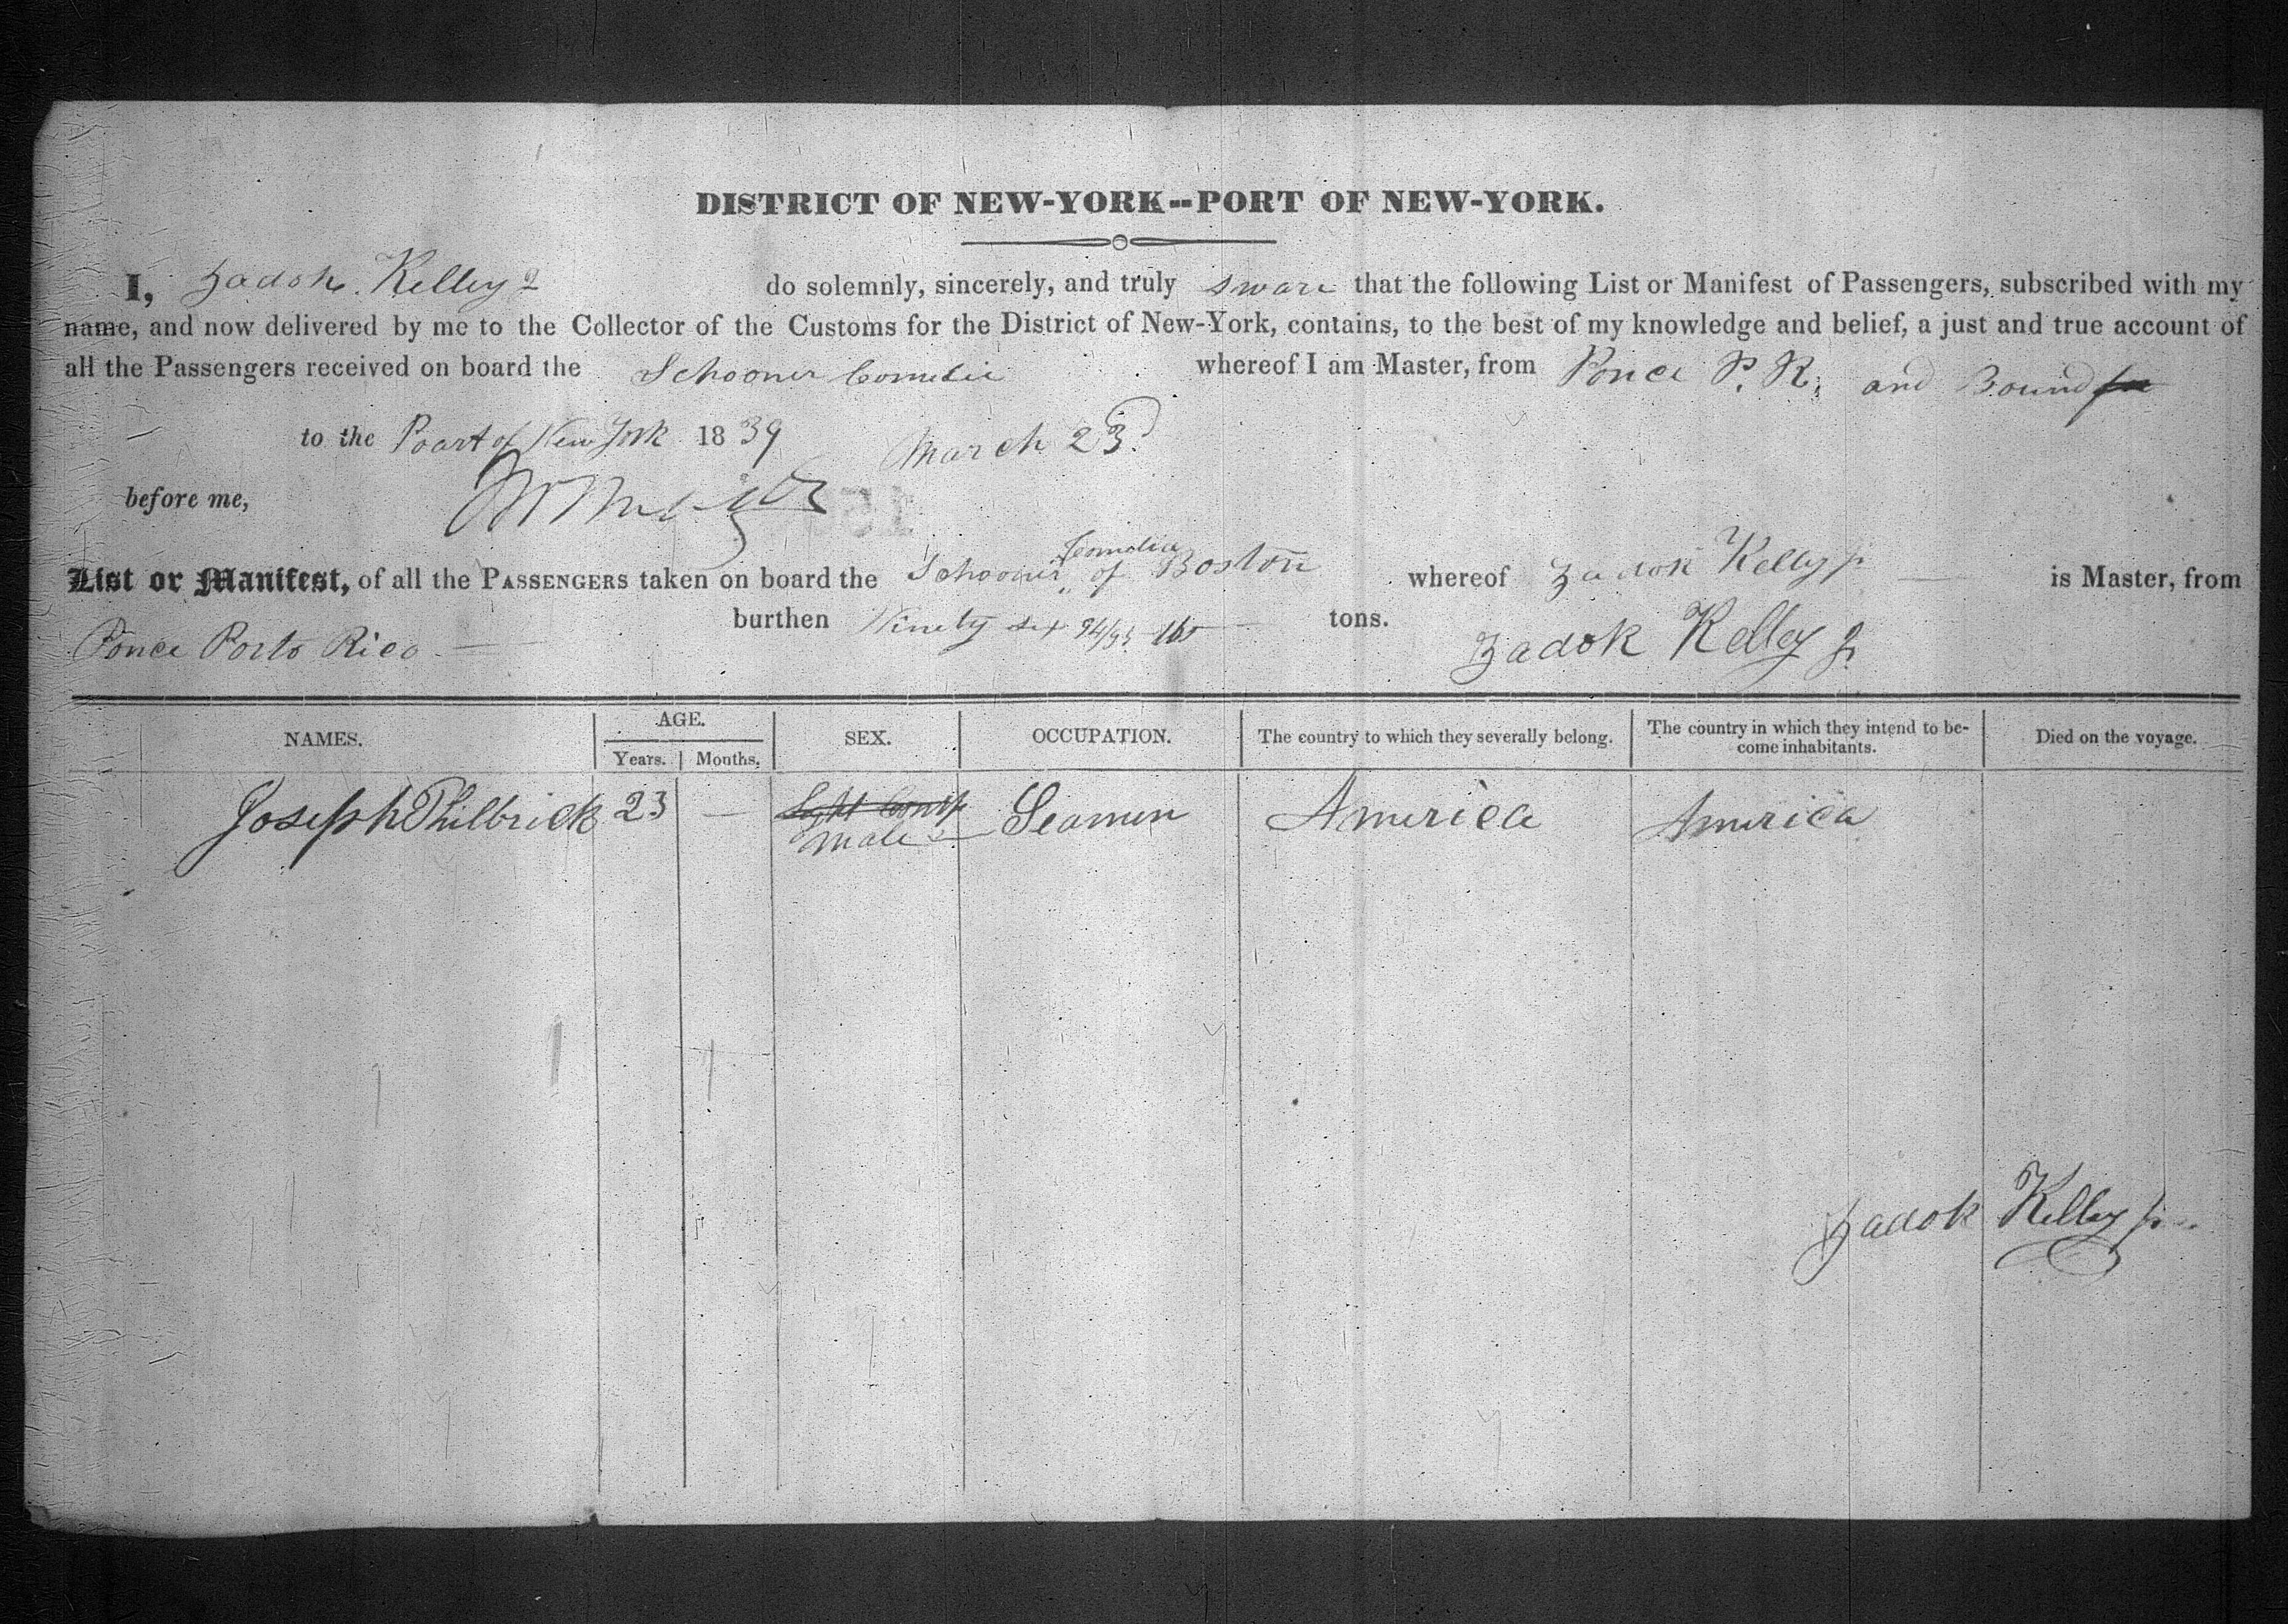 DISTRICT OF NEW-YORK--PORT OF NEW-YORK.
I, Zadok Kelley do solemnly, sincerely, and truly sware that the following List or Manifest of Passengers, subscribed with my
name, and now delivered by me to the Collector of the Customs for the District of New-York, contains, to the best of my knowledge and belief, a just and true account of
all the Passengers received on board the Schooner whereof I am Master, from Ponce P. R. and Bound
to the Poart of New York 1839 March 23
before me,
List or Manifest, of all the PASSENGERS taken on board the Schooner of Boston whereof Zadok Kelley jr is Master, from
Ponce Porto Rico burthen Ninety six 94/95 tons.
Zadok Kelley jr
NAMES. AGE. SEX. OCCUPATION. The country to which they severally belong. The country in which they intend to be-
come inhabitants. Died on the voyage.
Years. Months.
Joseph Philbrick 23 — Male Seamen America America
Zadok Kelley jr